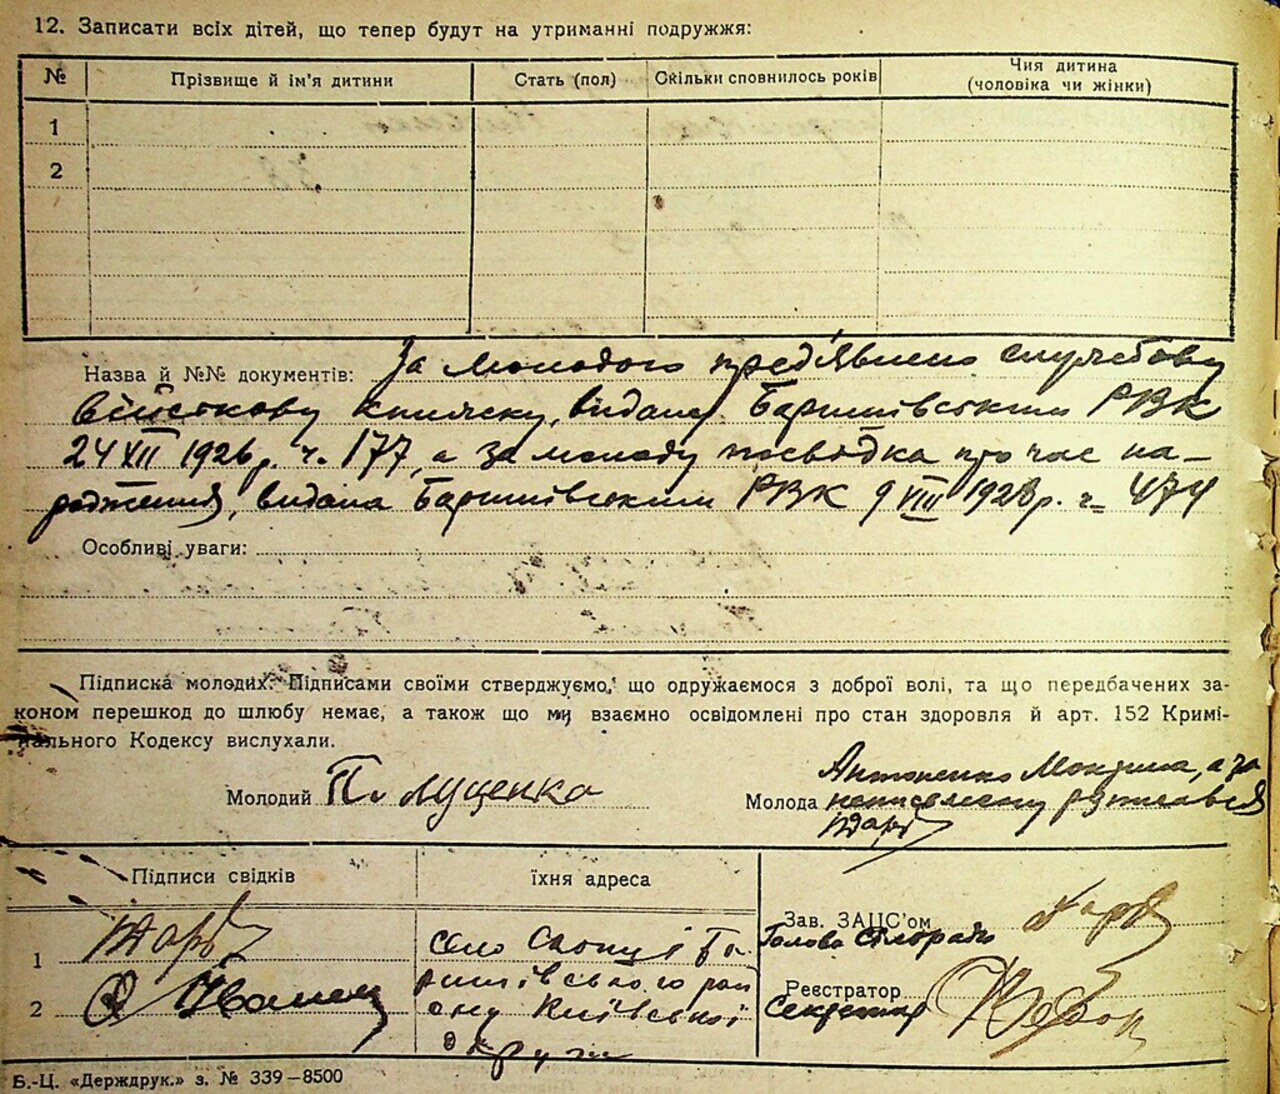 12. Записати всіх дітей, що тепер будут на утриманні подружжя:
№ Прізвище й ім'я дитини Стать (пол) Скільки сповнилось років Чия дитина (чоловіка чи жінки)
1
2
Назва й №№ документів: За молодого пред'явлено службову
військову книжку, видану Баришівським РВК
24 XII 1926 р. ч. 177, а за молоду посвідка про час на-
родження, видана Баришівським РВК 9 VIII 1928 р. ч. 474
Особливі уваги:
Підписка молодих: Підписами своїми стверджуємо, що одружаємося з доброї волі, та що передбачених за-
коном перешкод до шлюбу немає, а також що ми взаємно освідомлені про стан здоровля й арт. 152 Кримі-
нального Кодексу вислухали.
Молодий П. Луценко
Молода Антоненко Мокрина, а за
неписьмену розписався
Підписи свідків їхня адреса
1
2
село Селищі Ба-
ришівського рай
ону Київської
округи
Зав. ЗАЦС'ом
Голова сільради
Реєстратор
Секретар
Б.-Ц. «Держдрук.» з. № 339—8500